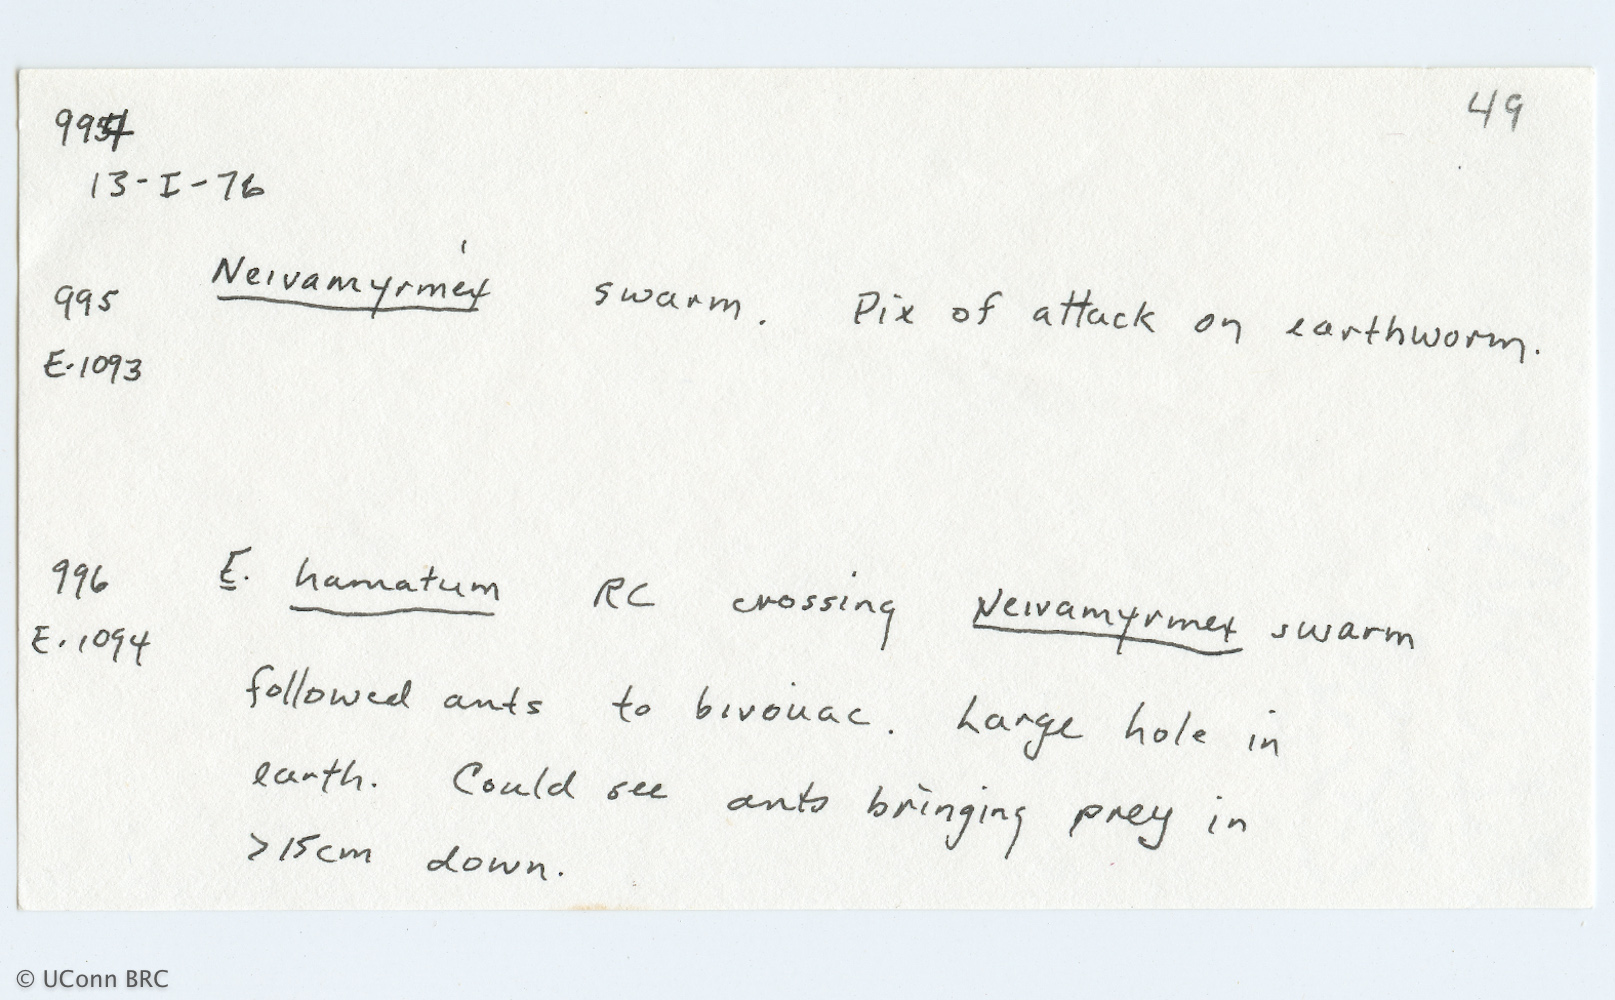 49
994
13-I-76
995 Neivamyrmex swarm. Pix of attack on earthworm.
E.1093
996 E. hamatum RC crossing Neivamyrmex swarm
E.1094
followed ants to bivouac. Large hole in
earth. Could see ants bringing prey in
>15cm down.
© UConn BRC